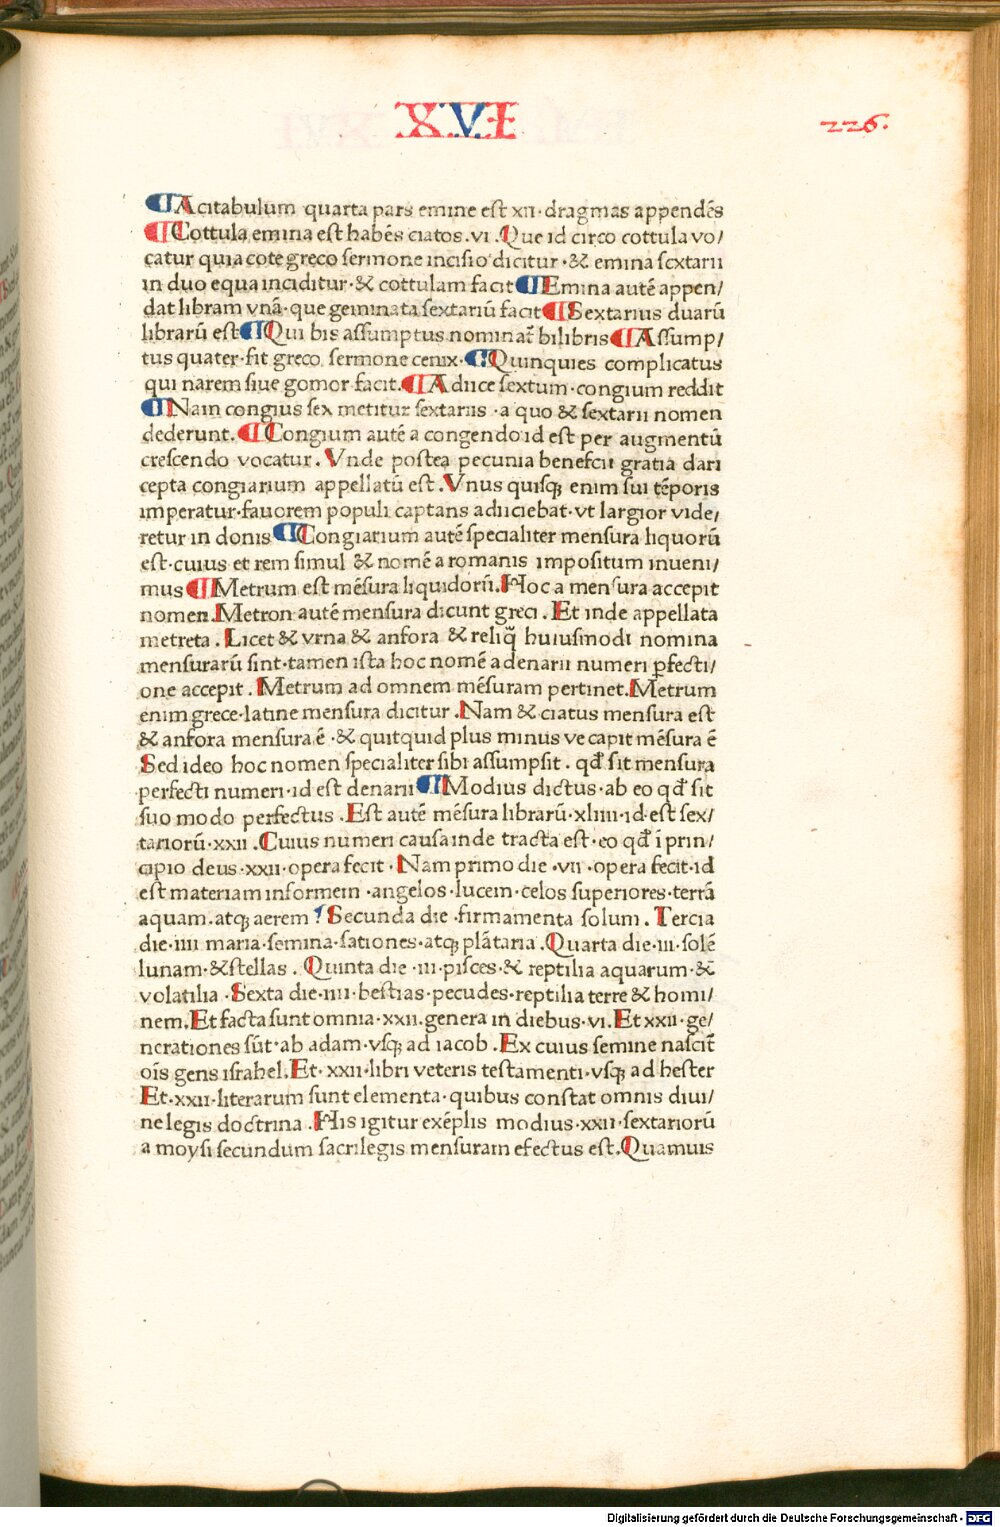 XVI
226.
¶Acitabulum quarta pars emine est xii·dragmas appendēs
¶Cottula emina est habēs ciatos.vi.Que id circo cottula vo/
catur quia cote greco sermone incisio dicitur·& emina sextarii
in duo equa inciditur·& cottulam facit¶Emina autē appen/
dat libram vnā·que geminata sextariū facit¶Sextarius duarū
librarū est¶Qui bis assumptus nominat᷑ bilibris¶Assump/
tus quater·fit greco sermone cenix·¶Quinquies complicatus
qui narem siue gomor facit.¶Adiice sextum·congium reddit
¶Nam congius sex metitur sextariis·a quo & sextarii nomen
dederunt.¶Congium autē a congendo id est per augmentū
crescendo vocatur.Vnde postea pecunia beneficii gratia dari
cepta congiarium appellatū est.Vnus quisqꝫ enim sui tēporis
imperatur·fauorem populi captans adiiciebat·vt largior vide/
retur in donis¶Congiarium autē specialiter mensura liquorū
est·cuius et rem simul & nomē a romanis impositum inueni/
mus¶Metrum est mēsura liquidorū.Hoc a mensura accepit
nomen.Metron autē mensura dicunt greci.Et inde appellata
metreta.Licet & vrna & anfora & reliq̄ huiusmodi nomina
mensurarū sint·tamen ista hoc nomē a denarii numeri ꝑfecti/
one accepit.Metrum ad omnem mēsuram pertinet.Metrum
enim grece·latine mensura dicitur.Nam & ciatus mensura est
& anfora mensura ē·& quitquid plus minus ve capit mēsura ē
Sed ideo hoc nomen specialiter sibi assumpsit.qđ sit mensura
perfecti numeri·id est denarii¶Modius dictus·ab eo qđ sit
suo modo perfectus.Est autē mēsura librarū·xliiii·id·est sex/
tariorū·xxii.Cuius numeri causa inde tracta est·eo qđ ī prin/
cipio deus·xxii·opera fecit.Nam primo die·vii·opera fecit·id
est materiam informem·angelos·lucem·celos superiores·terrā
aquam.atqꝫ aerem?Secunda die·firmamenta solum.Tercia
die·iiii maria·semina·sationes·atqꝫ plātaria.Quarta die·iii·solē
lunam·&stellas.Quinta die·iii·pisces·& reptilia aquarum·&
volatilia.Sexta die·iiii·bestias·pecudes·reptilia terre & homi/
nem.Et facta sunt omnia·xxii.genera in diebus·vi.Et xxii·ge/
nerationes sūt·ab adam·vsqꝫ ad iacob.Ex cuius semine nascit᷑
oīs gens israhel.Et·xxii·libri veteris testamenti·vsqꝫ ad hester
Et·xxii·literarum sunt elementa·quibus constat omnis diui/
ne legis doctrina.His igitur exēplis modius·xxii·sextariorū
a moysi secundum sacrilegis mensuram efectus est.Quamuis
Digitalisierung gefördert durch die Deutsche Forschungsgemeinschaft - DFG